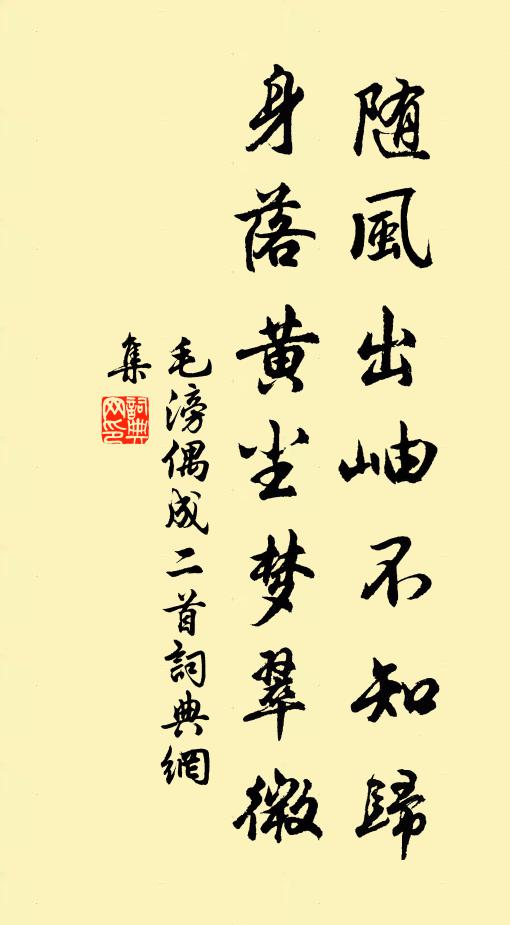 随風出岫不知歸
身落黄尘梦翠微
毛滂偶成二首詞典網
集
詞典
网印